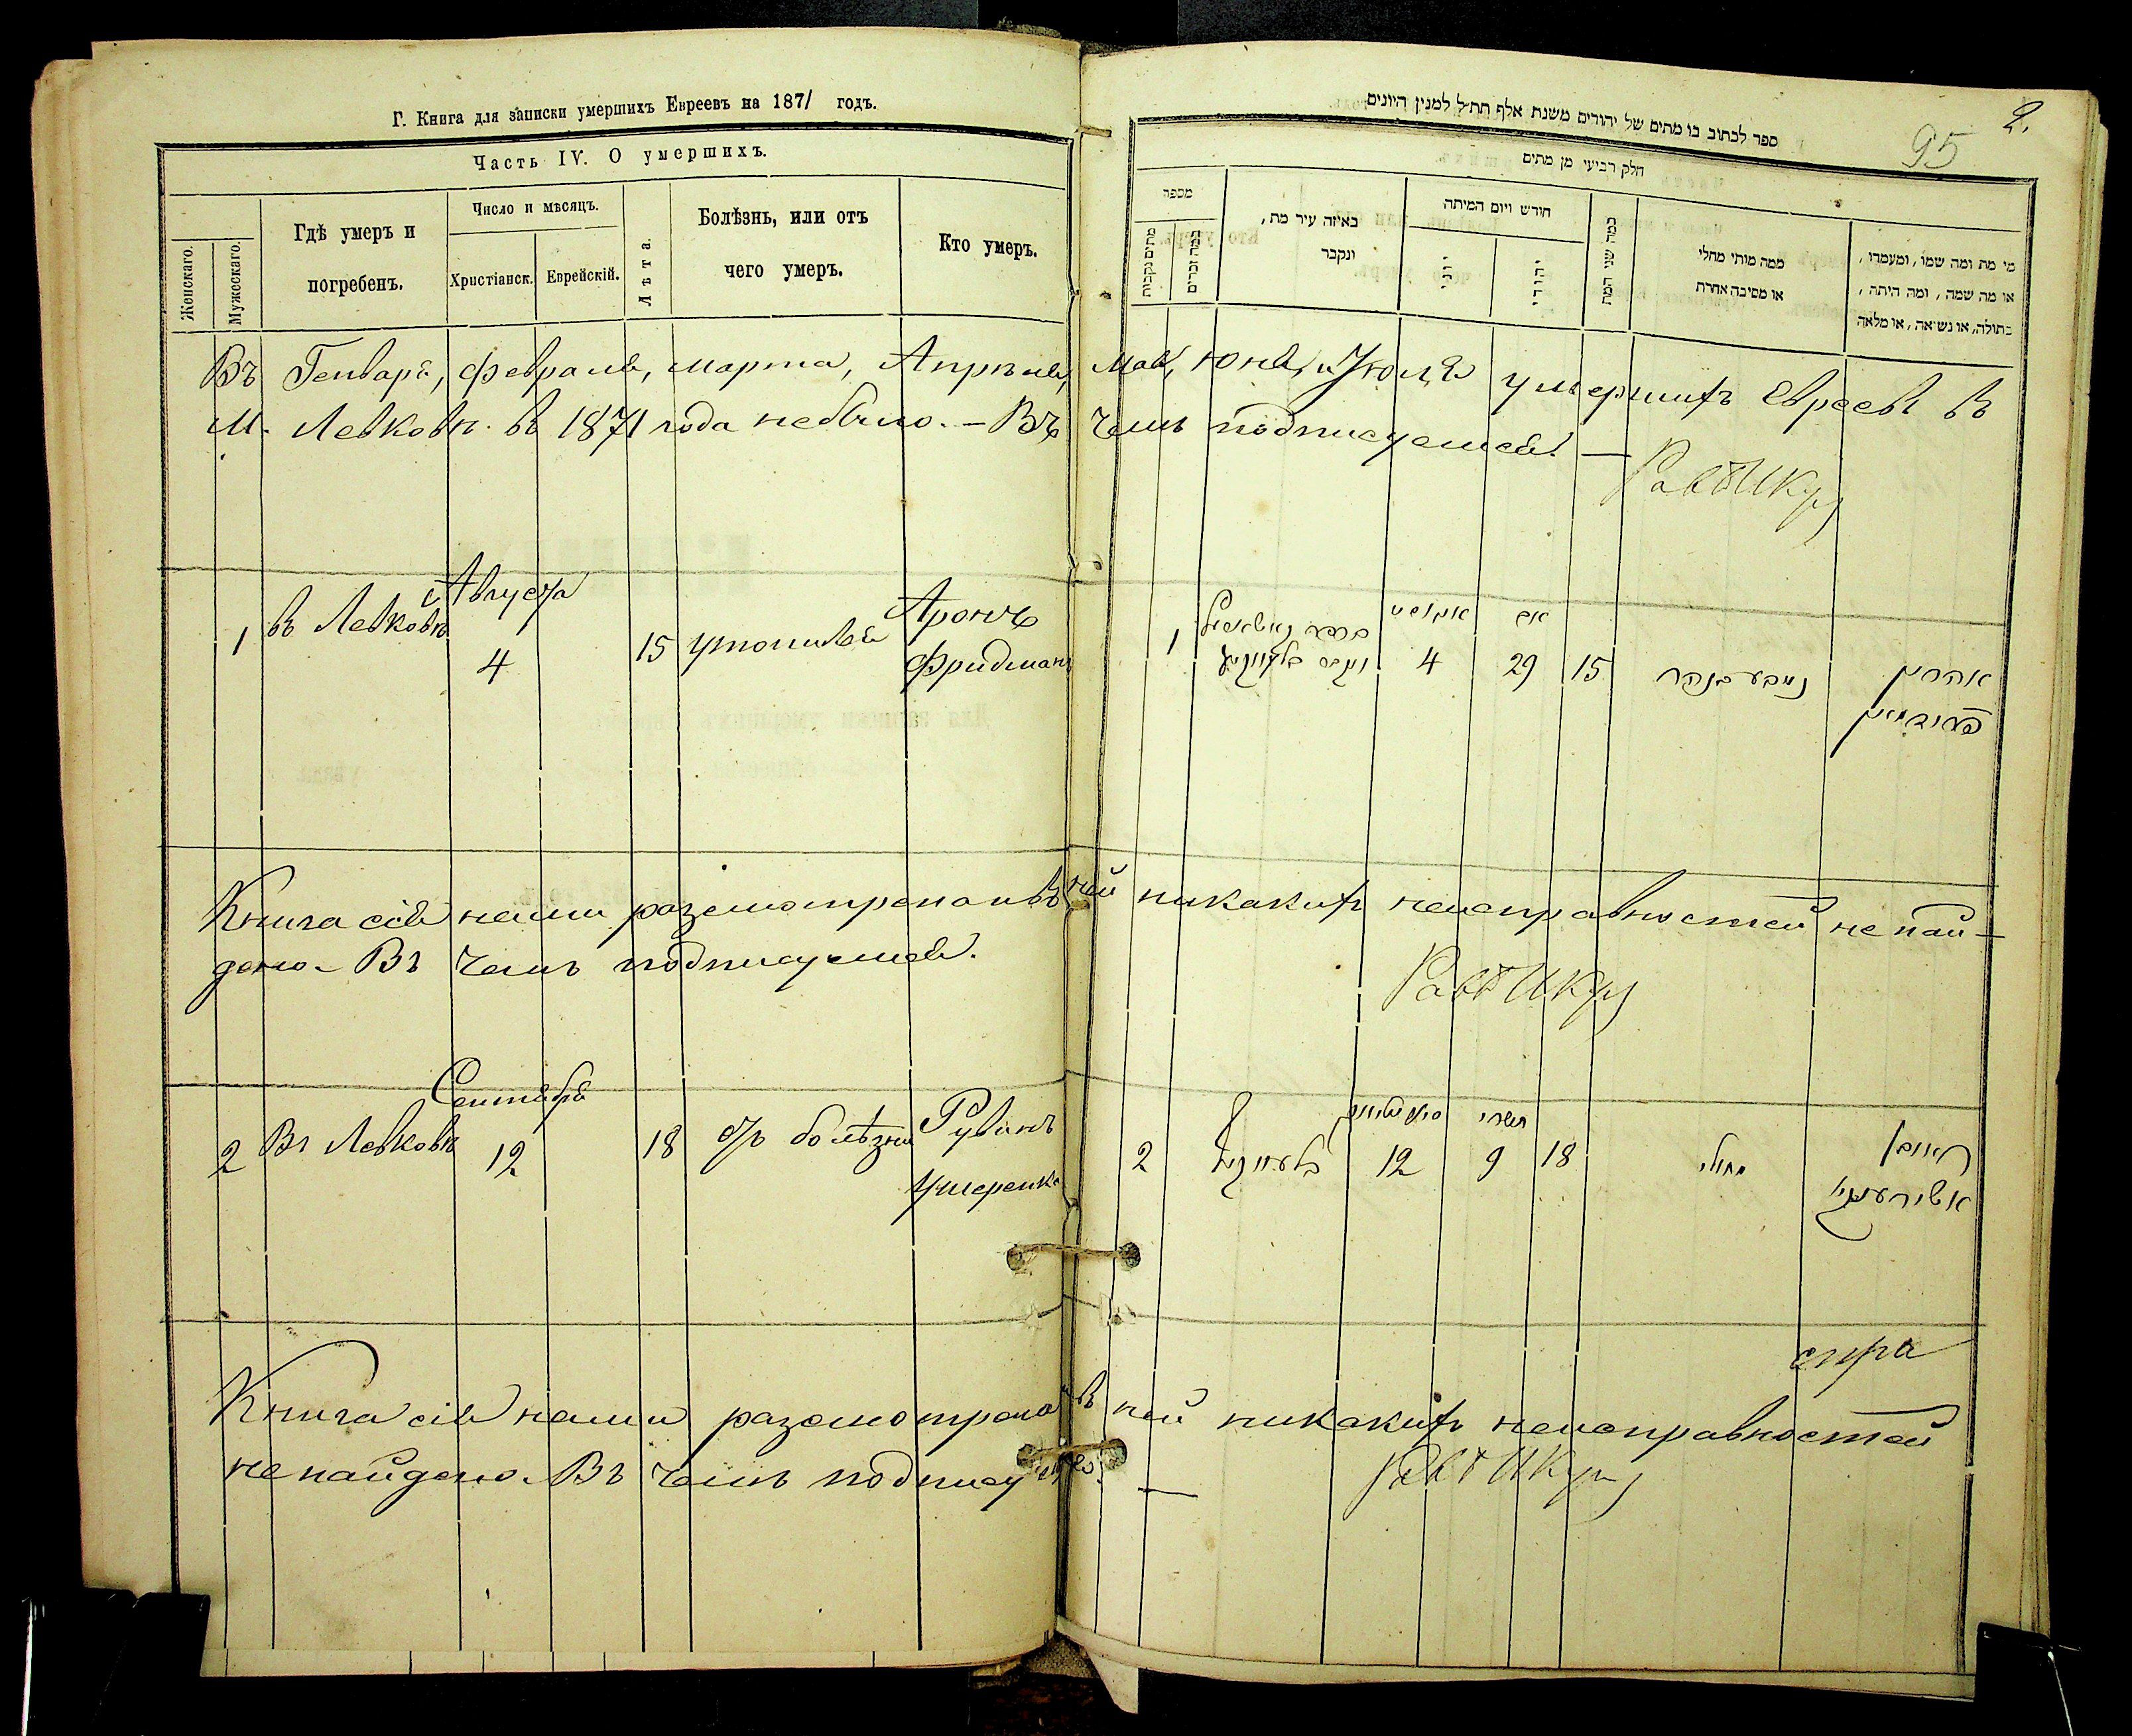 Г. Книга для записки умершихъ Евреевъ на 1871 годъ.
Часть IV. О умершихъ.
Женскаго.
Мужескаго.
Гдѣ умеръ и
погребенъ.
Число и мѣсяцъ.
Христіанск.
Еврейскій.
Лѣта.
Болѣзнь, или отъ
чего умеръ.
Кто умеръ.
2.
95
ספר לכתוב בו מתים של יהודים משנת אלף תת״ל למנין היונים
חלק רביעי מן מתים
מספר
מתים נקבות
כמה זכרים
באיזה עיר מת,
ונקבר
חודש ויום המיתה
יוני
יהודי
כמה שני המת
ממה מותי מחלי
או מסיבה אחרת
מי מת ומה שמו, ומעמדו,
או מה שמה, ומה היתה,
בתולה, או נשואה, או מלאה
Въ Генваря, Февраля, марта, Апрѣля, мая, юня, и Июля умершихъ Евреевъ въ
м. Левковѣ въ 1871 года небыло. – Въ чемъ подписуемся. —
1 въ Левковѣ Августа 4 15 утопился Аронъ
Фридманъ
1 אגוסט 4 אב 29 15 נטבע בנהר אהרן
פרידמאן
Книга сія нами разсмотрена и въ ней никакихъ неисправностей не най-
дено. Въ чемъ подписуемся.
2 Въ Левковѣ Сентября 12 18 отъ болѣзни Рувинъ
Ушеренко
2 12 תשרי 9 18 מחולי ראובן
Книга сія нами разсмотрена и въ ней никакихъ неисправностей
не найдено. Въ чемъ подписуемся. —